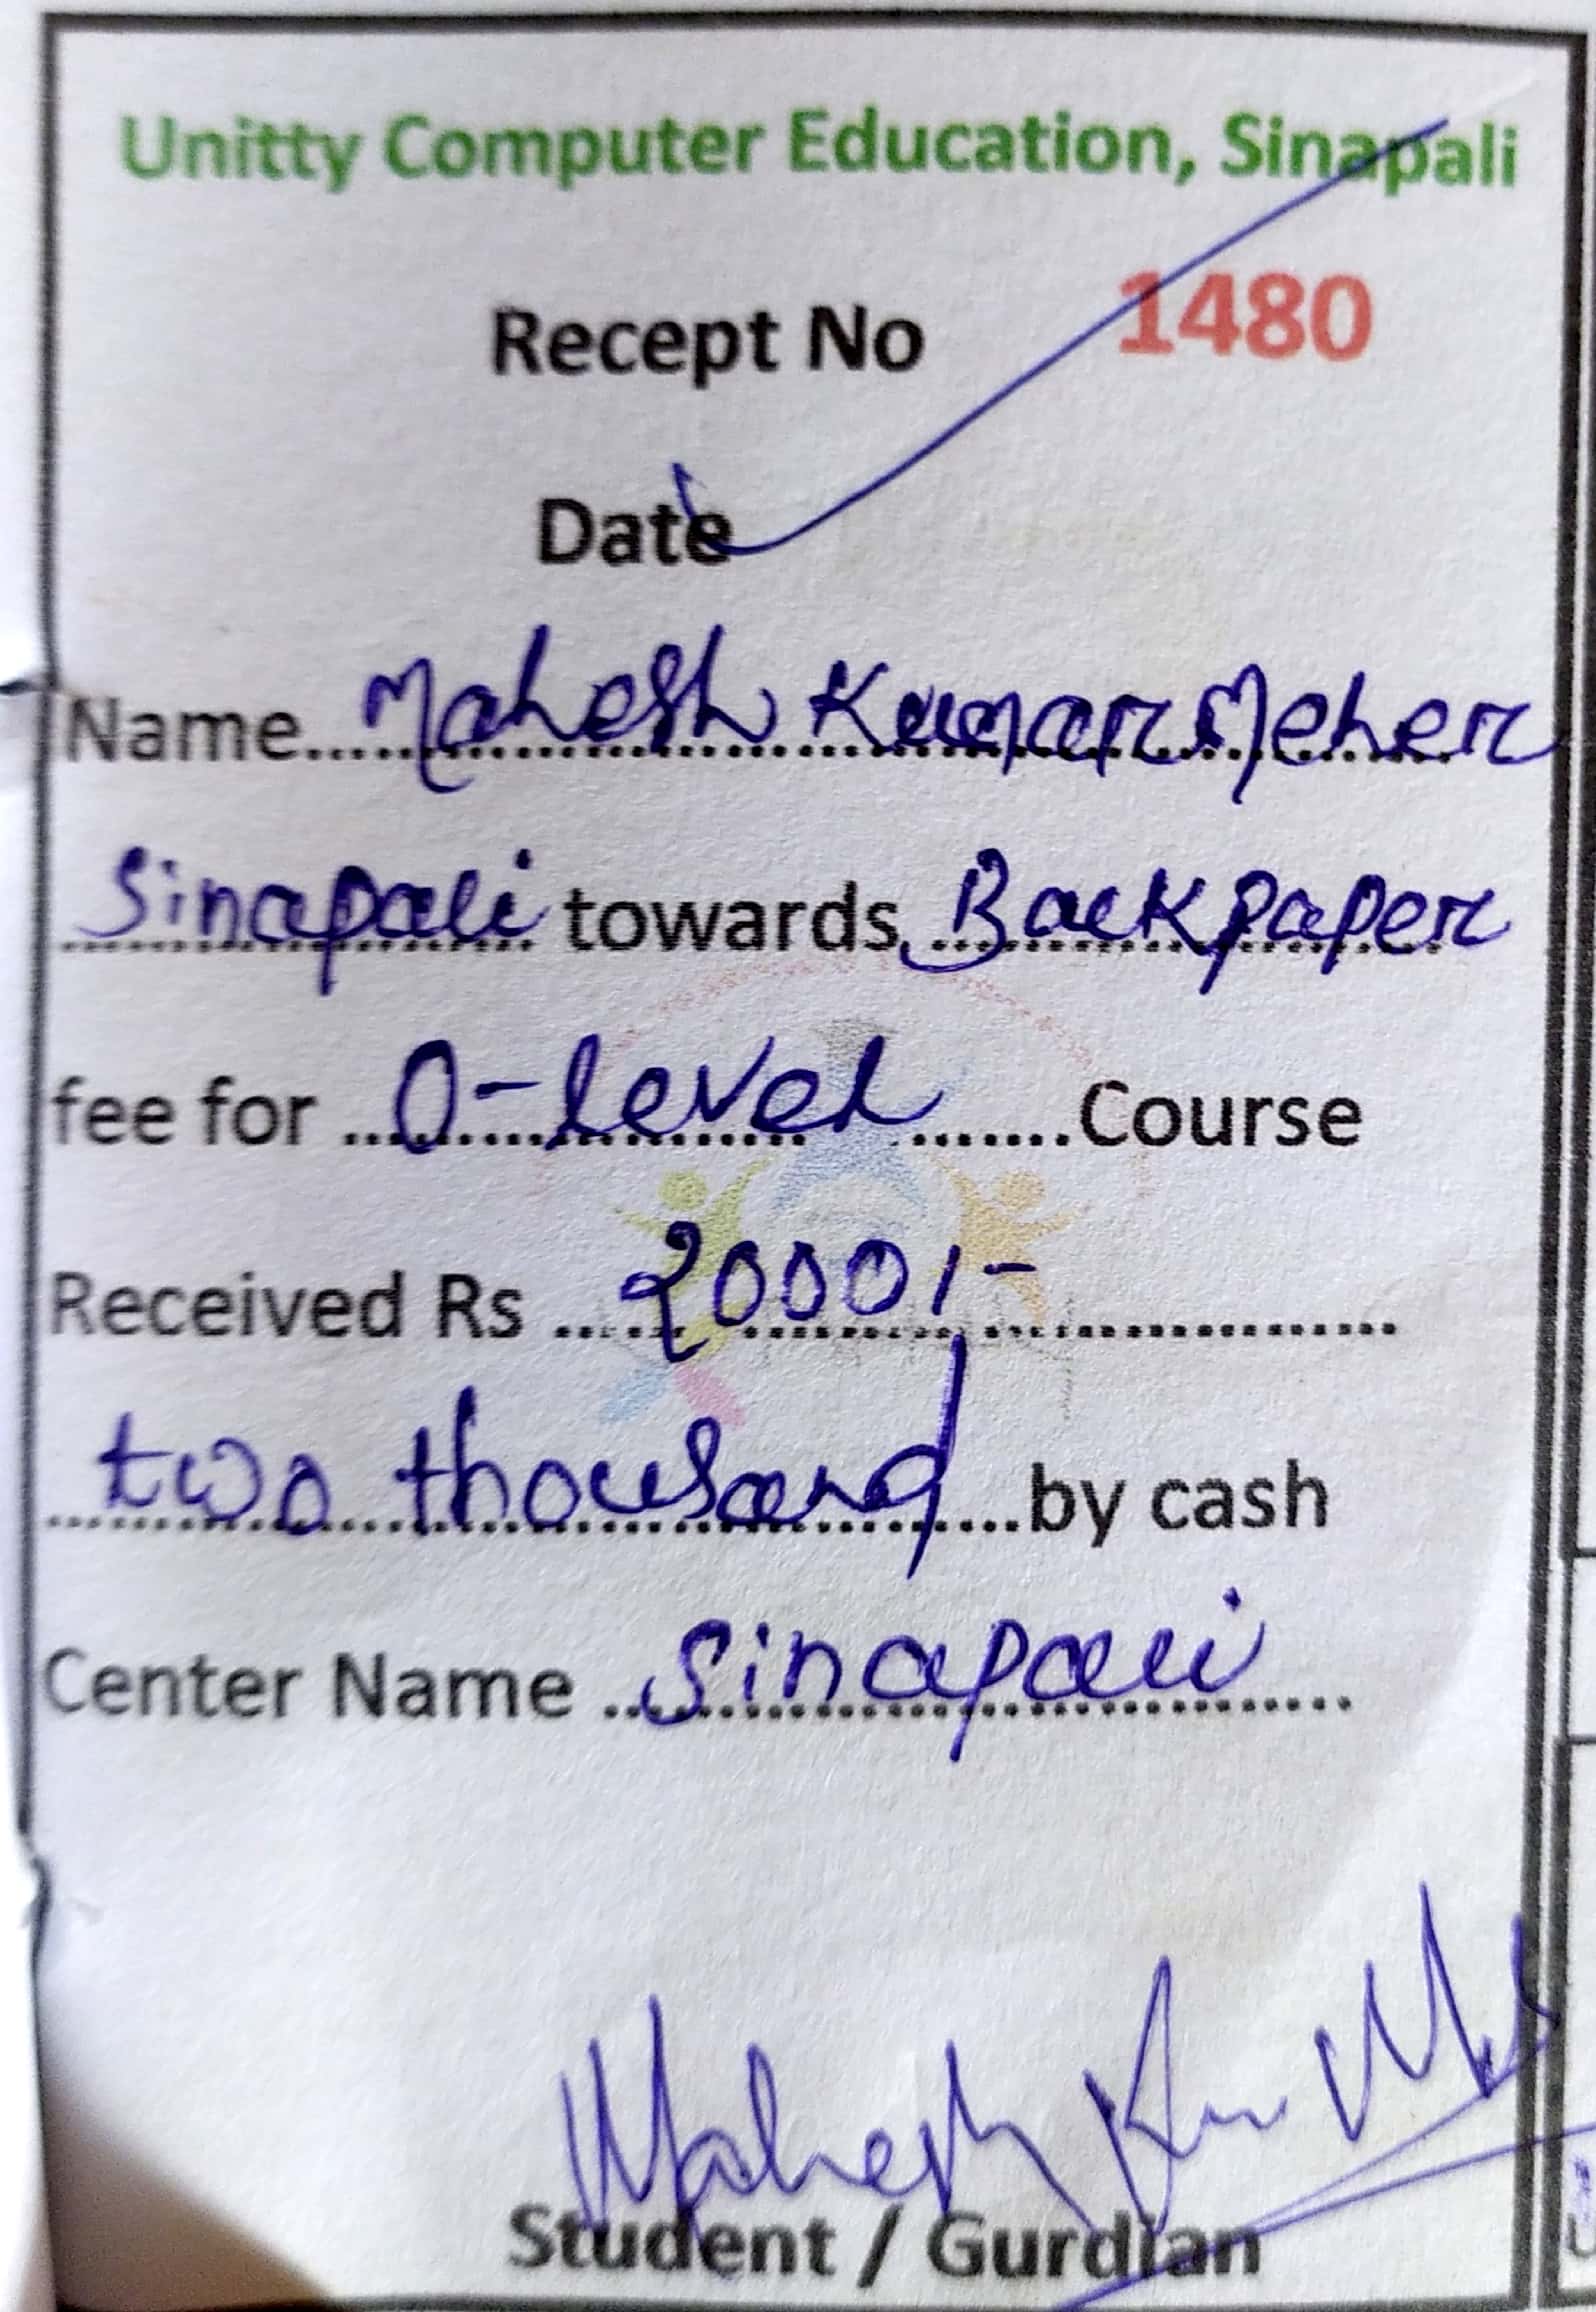 Unitty Computer Education, Sinapali
Recept No 1480
Date
Name.......Mahesh Kumar Meher
Sinapali towards Backpaper
fee for ...O-level.......Course
Received Rs ...2000/-...
two thousand...by cash
Center Name ...Sinapali...
Mahesh Kr Meher
Student / Gurdian